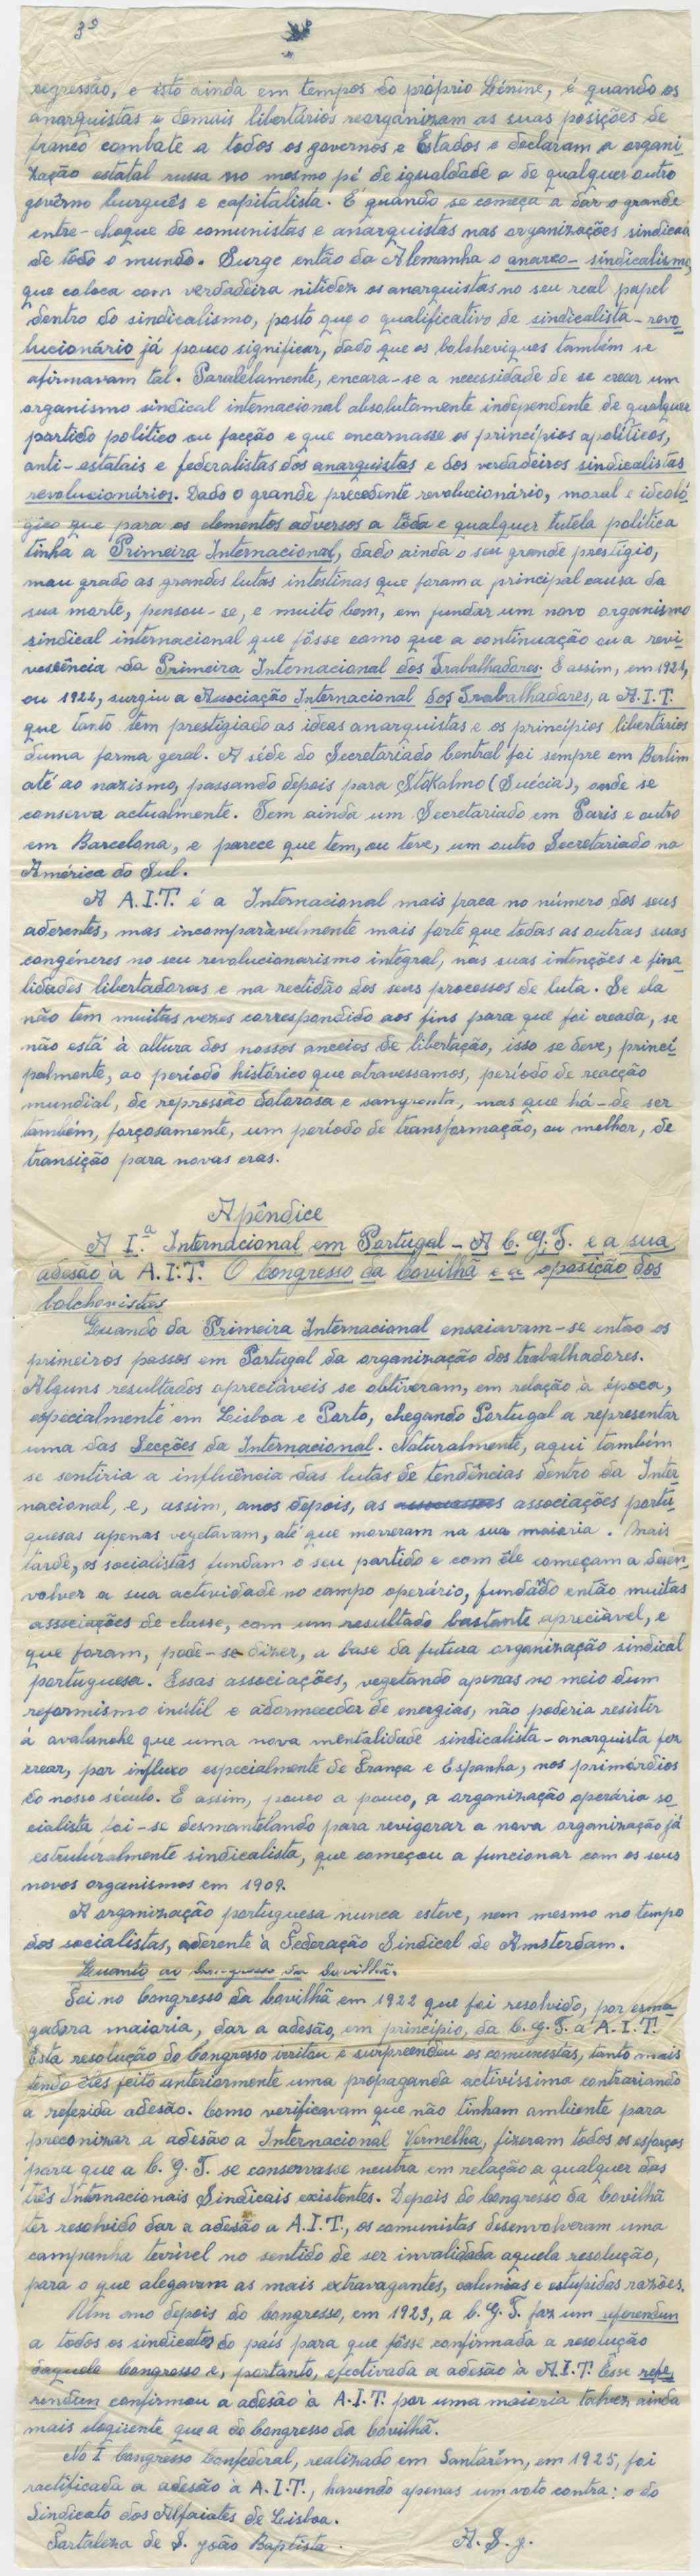 3º
regressão, e isto ainda em tempos do próprio Lénine, é quando os
anarquistas e demais libertários reorganizam as suas posições de
franco combate a todos os governos e Estados e declaram a organi-
zação estatal russa no mesmo pé de igualdade o de qualquer outro
govêrno burguês e capitalista. E quando se começa a dar o grande
entre-choque de comunistas e anarquistas nas organizações sindicais
de todo o mundo. Surge então da Alemanha o anarco-sindicalismo,
que coloca com verdadeira nitidez os anarquistas no seu real papel
dentro do sindicalismo, posto que o qualificativo de sindicalista-revo-
lucionário já pouco significar, dado que os bolcheviques também se
afirmavam tal. Paralelamente, encara-se a necessidade de se crear um
organismo sindical internacional absolutamente independente de qualquer
partido político ou facção e que encarnasse os princípios apolíticos,
anti-estatais e federalistas dos anarquistas e dos verdadeiros sindicalistas
revolucionários. Dado o grande precedente revolucionário, moral e ideoló-
gico que para os elementos adversos a tôda e qualquer tutela política
tinha a Primeira Internacional, dado ainda o seu grande prestígio,
mau grado as grandes lutas intestinas que foram a principal causa da
sua morte, pensou-se, e muito bem, em fundar um novo organismo
sindical internacional que fôsse como que a continuação ou a revi-
vescência da Primeira Internacional dos Trabalhadores. E assim, em 1921,
ou 1922, surgiu a Associação Internacional dos Trabalhadores, a A.I.T.
que tanto tem prestigiado as ideas anarquistas e os princípios libertários
duma forma geral. A séde do Secretariado Central foi sempre em Berlim
até ao nazismo, passando depois para Stokolmo (Suécia), onde se
conserva actualmente. Tem ainda um Secretariado em Paris e outro
em Barcelona, e parece que tem, ou teve, um outro Secretariado na
América do Sul.
A A.I.T. é a Internacional mais fraca no número dos seus
aderentes, mas incomparàvelmente mais forte que todas as outras suas
congéneres no seu revolucionarismo integral, nas suas intenções e fina-
lidades libertadoras e na rectidão dos seus processos de luta. Se ela
não tem muitas vezes correspondido aos fins para que foi creada, se
não está à altura dos nossos anceios de libertação, isso se deve, princi-
palmente, ao período histórico que atravessamos, período de reacção
mundial, de repressão dolorosa e sangrenta, mas que há-de ser
também, forçosamente, um período de transformação, ou melhor, de
transição para novas eras.
Apêndice
A I.ª Internacional em Portugal - A C.G.T. e a sua
adesão à A.I.T. O Congresso da Covilhã e a oposição dos
bolchevistas
Quando da Primeira Internacional ensaiavam-se então os
primeiros passos em Portugal da organização dos trabalhadores.
Alguns resultados apreciáveis se obtiveram, em relação à época,
especialmente em Lisboa e Porto, chegando Portugal a representar
uma das Secções da Internacional. Naturalmente, aqui também
se sentiria a influência das lutas de tendências dentro da Inter-
nacional, e, assim, anos depois, as associações portu-
guesas apenas vegetavam, até que morreram na sua maioria. Mais
tarde, os socialistas fundam o seu partido e com êle começam a desen-
volver a sua actividade no campo operário, fundando então muitas
associações de classe, com um resultado bastante apreciável, e
que foram, pode-se dizer, a base da futura organização sindical
portuguesa. Essas associações, vegetando apenas no meio dum
reformismo inútil e adormecedor de energias, não poderia resistir
à avalanche que uma nova mentalidade sindicalista-anarquista fez
crear, por influxo especialmente de França e Espanha, nos primórdios
do nosso século. E assim, pouco a pouco, a organização operária so-
cialista foi-se desmantelando para revigorar a nova organização já
estruturalmente sindicalista, que começou a funcionar com os seus
novos organismos em 1909.
A organização portuguesa nunca esteve, nem mesmo no tempo
dos socialistas, aderente à Federação Sindical de Amsterdam.
Quanto ao Congresso da Covilhã.
Foi no Congresso da Covilhã em 1922 que foi resolvido, por esma-
gadora maioria, dar a adesão, em princípio, da C.G.T. a A.I.T.
Esta resolução do Congresso irritou e surpreendeu os comunistas, tanto mais
tendo êles feito anteriormente uma propaganda activíssima contrariando
a referida adesão. Como verificavam que não tinham ambiente para
preconizar a adesão a Internacional Vermelha, fizeram todos os esforços
para que a C.G.T. se conservasse neutra em relação a qualquer das
três Internacionais Sindicais existentes. Depois do Congresso da Covilhã
ter resolvido dar a adesão a A.I.T., os comunistas desenvolveram uma
campanha terrível no sentido de ser invalidada aquela resolução,
para o que alegavam as mais extravagantes, calunias e estupidas razões.
Um ano depois do Congresso, em 1923, a C.G.T. faz um referendun
a todos os sindicatos do país para que fôsse confirmada a resolução
daquele Congresso e, portanto, efectivada a adesão à A.I.T. Esse refe-
rendun confirmou a adesão à A.I.T. por uma maioria talvez ainda
mais eloqüente que a do Congresso da Covilhã.
No I Congresso Confederal, realizado em Santarém, em 1925, foi
ractificada a adesão à A.I.T., havendo apenas um voto contra: o do
Sindicato dos Alfaiates de Lisboa.
Fortaleza de S. João Baptista. A. S. J.